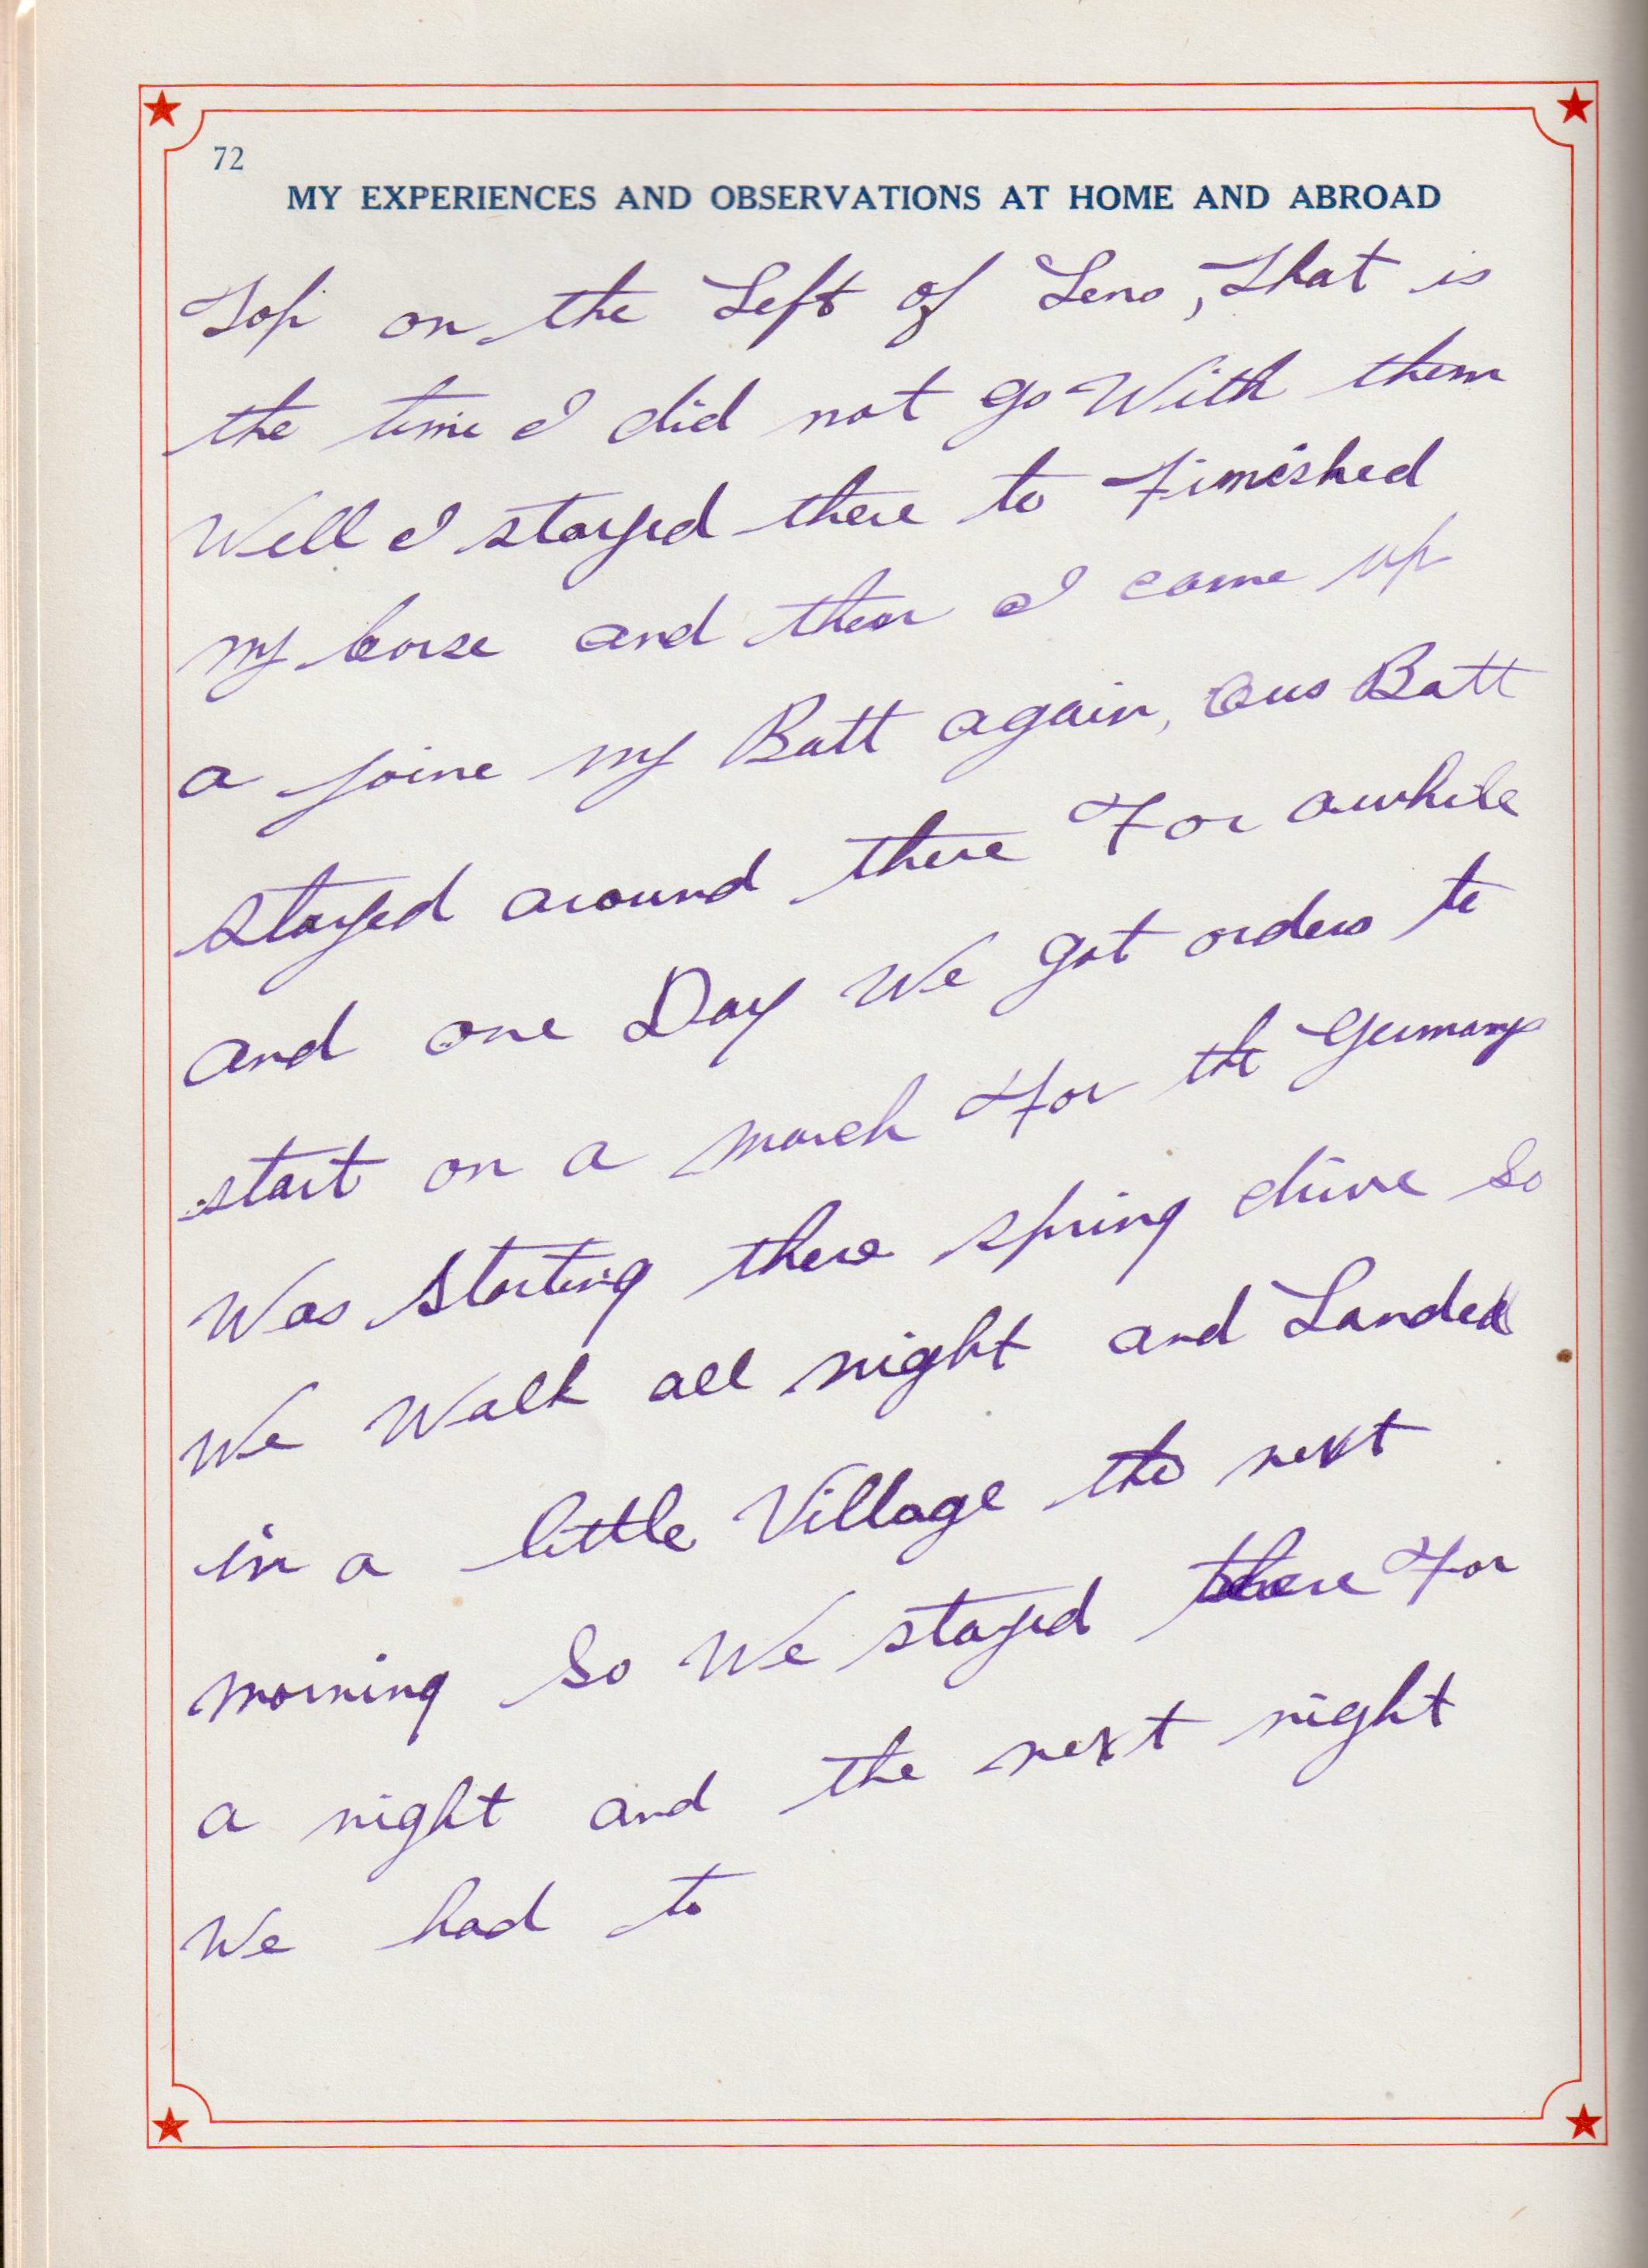 72
MY EXPERIENCES AND OBSERVATIONS AT HOME AND ABROAD
Top on the Left of Lens, that is
the time I did not go With them
Well I stayed there to Finished
my corse and then I came up
a joine my Batt again, Our Batt
stayed around there For awhile
and one Day We got orders to
start on a march For the Germany
Was Starting there spring drive So
We Walk all night and Landed
in a little Village the next
morning So We stayed there For
a night and the next night
We had to